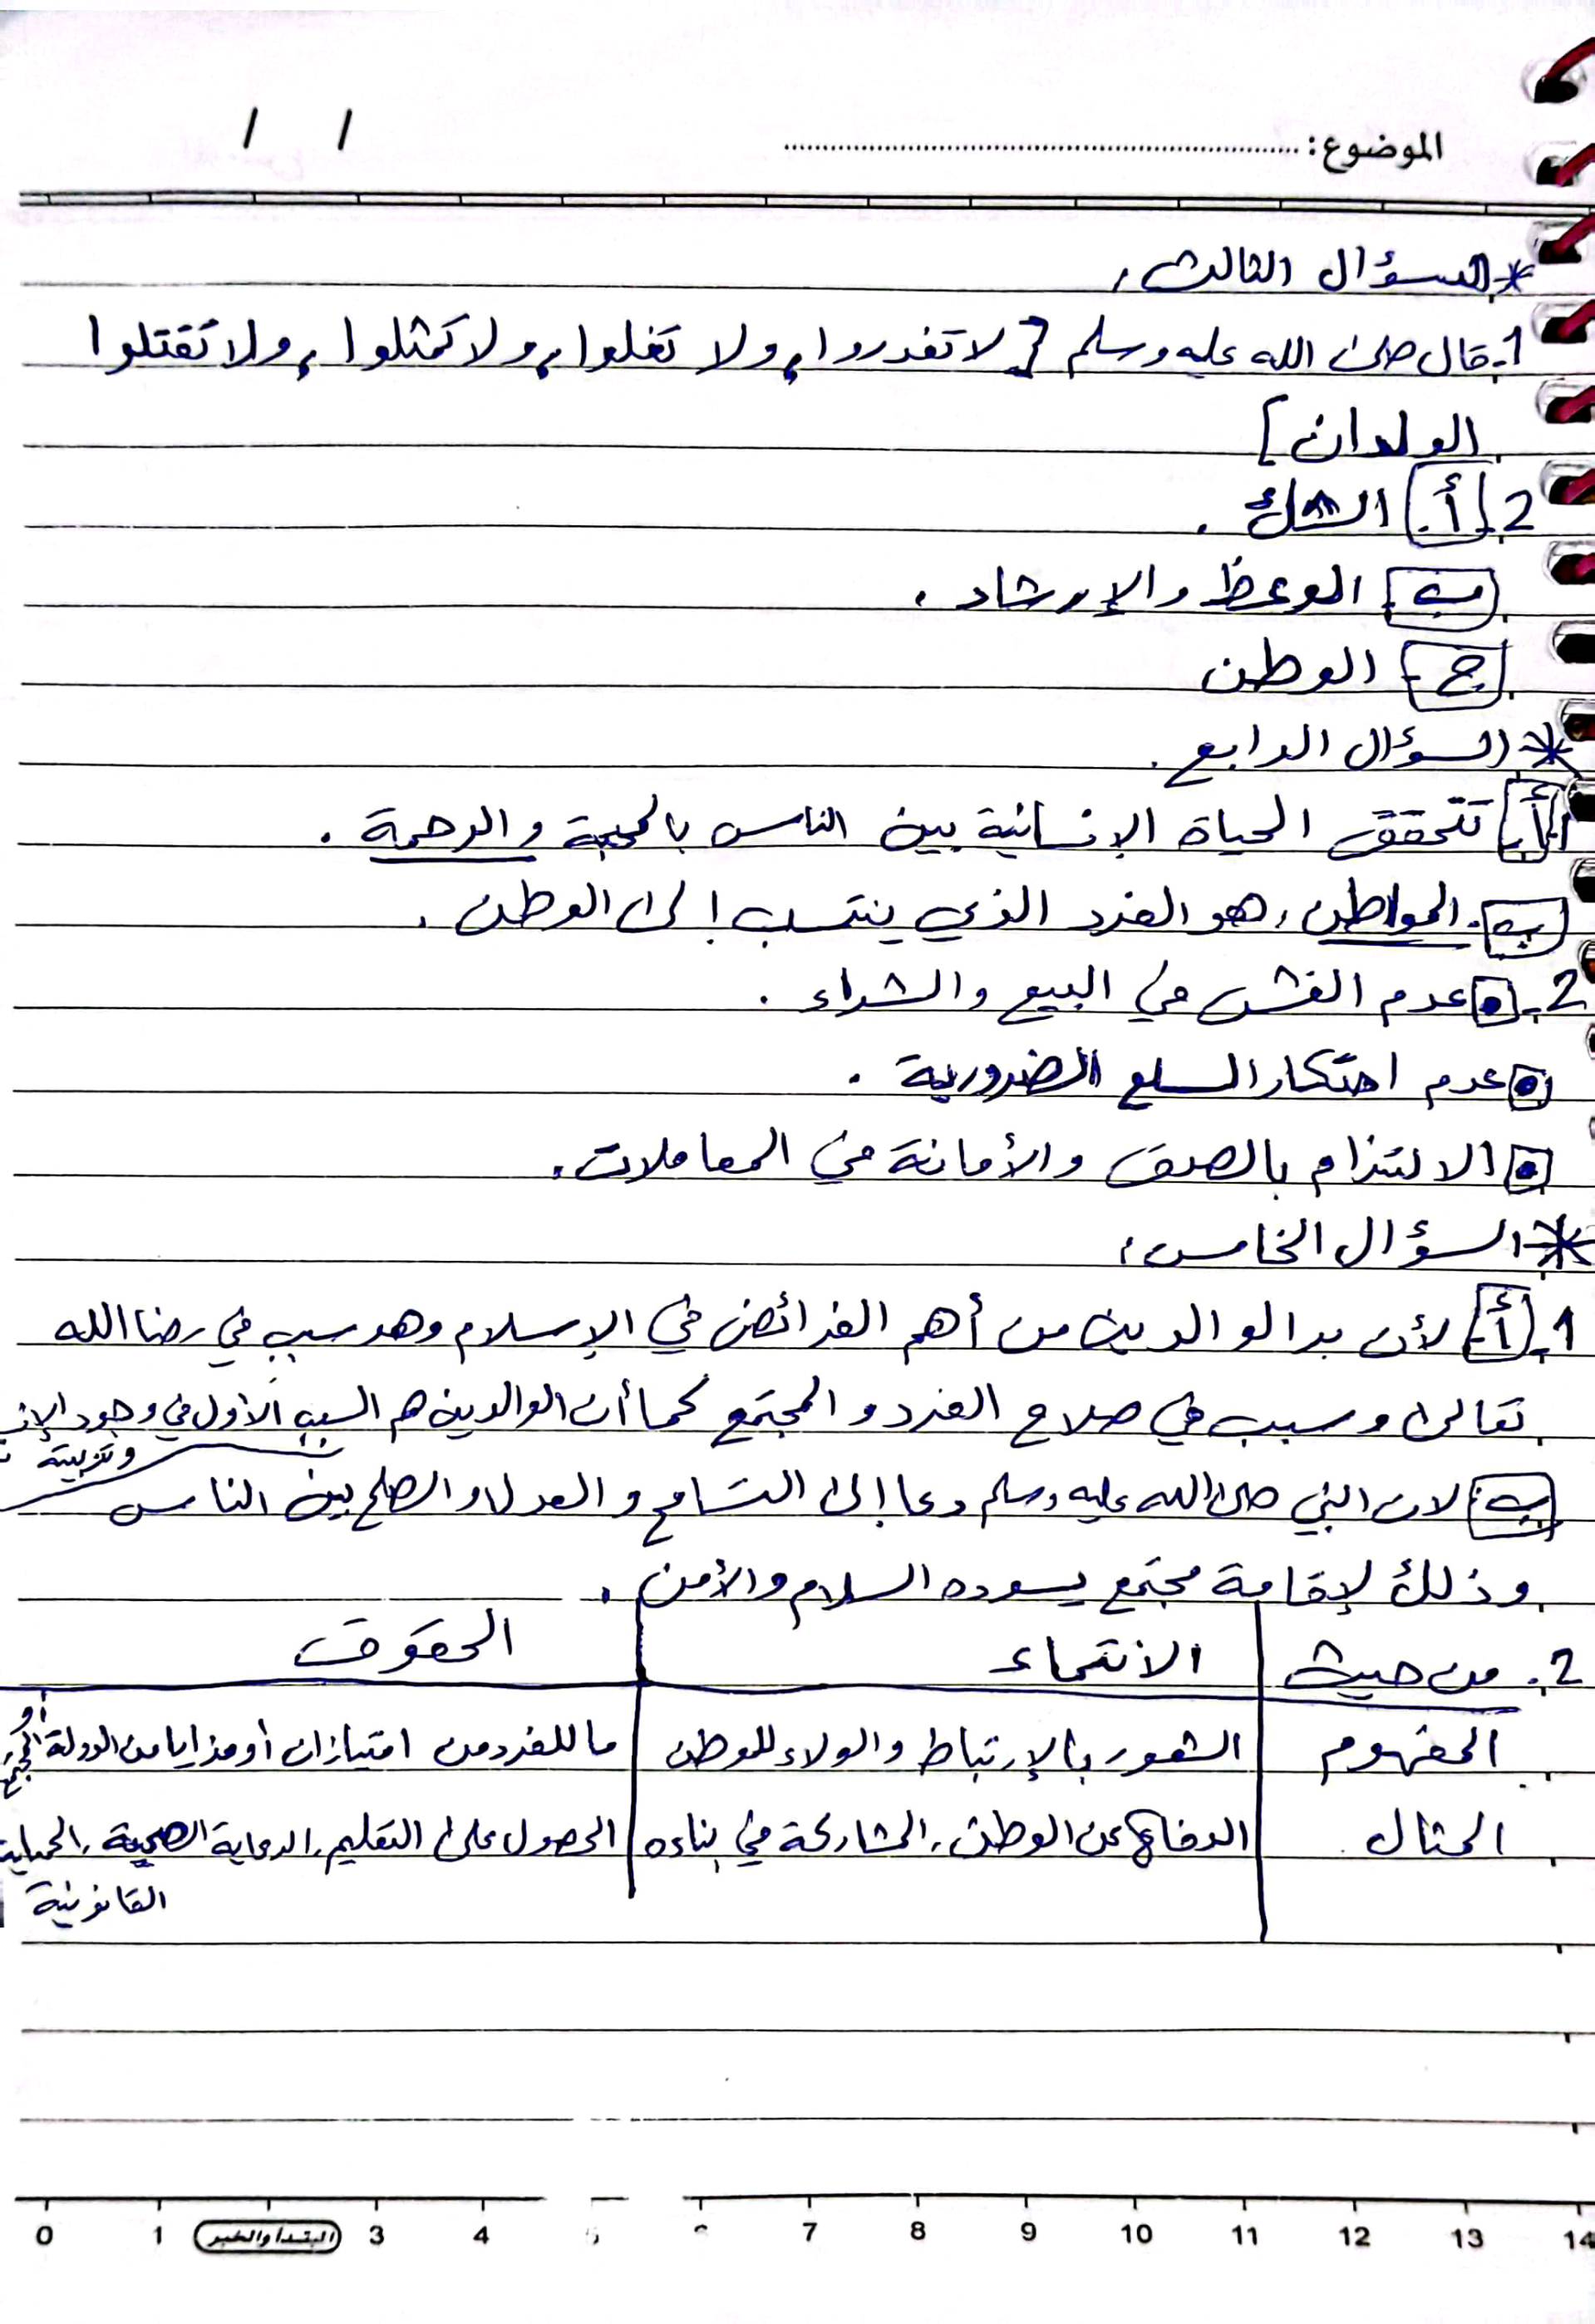 الموضوع: / /
* السؤال الثالث:
1- قال صلى الله عليه وسلم [لا تغدروا، ولا تغلوا، ولا تمثلوا، ولا تقتلوا
الولدان]
2. أ. الشك.
ب الوعظ والإرشاد.
ج الوطن
* السؤال الرابع.
1. أ. تتحقق الحياة الإنسانية بين الناس بالمحبة والرحمة.
ب. المواطن: هو الفرد الذي ينتسب إلى الوطن.
2. عدم الغش في البيع والشراء.
عدم احتكار السلع الضرورية.
الالتزام بالصدق والأمانة في المعاملات.
* السؤال الخامس:
1. أ. لأن بر الوالدين من أهم الفرائض في الإسلام وهو سبب في رضا الله
تعالى وسبب في صلاح الفرد والمجتمع كما أن الوالدين هم السبب الأول في وجود
وتربيته
ب. لان النبي صلى الله عليه وسلم دعا إلى التسامح والعدل والصلح بين الناس
وذلك لإقامة مجتمع يسوده السلام والأمن.
2. من حيث الانتماء الحقوق
المفهوم الشعور بالإرتباط والولاء للوطن ما للفرد من امتيازات أو مزايا من الدولة أو
المثال الدفاع عن الوطن، المشاركة في بناءه الحصول على التعليم، الرعاية الصحية، الحماية
القانونية
0 1 المبتدأ والخبر 3 4 7 8 9 10 11 12 13 14